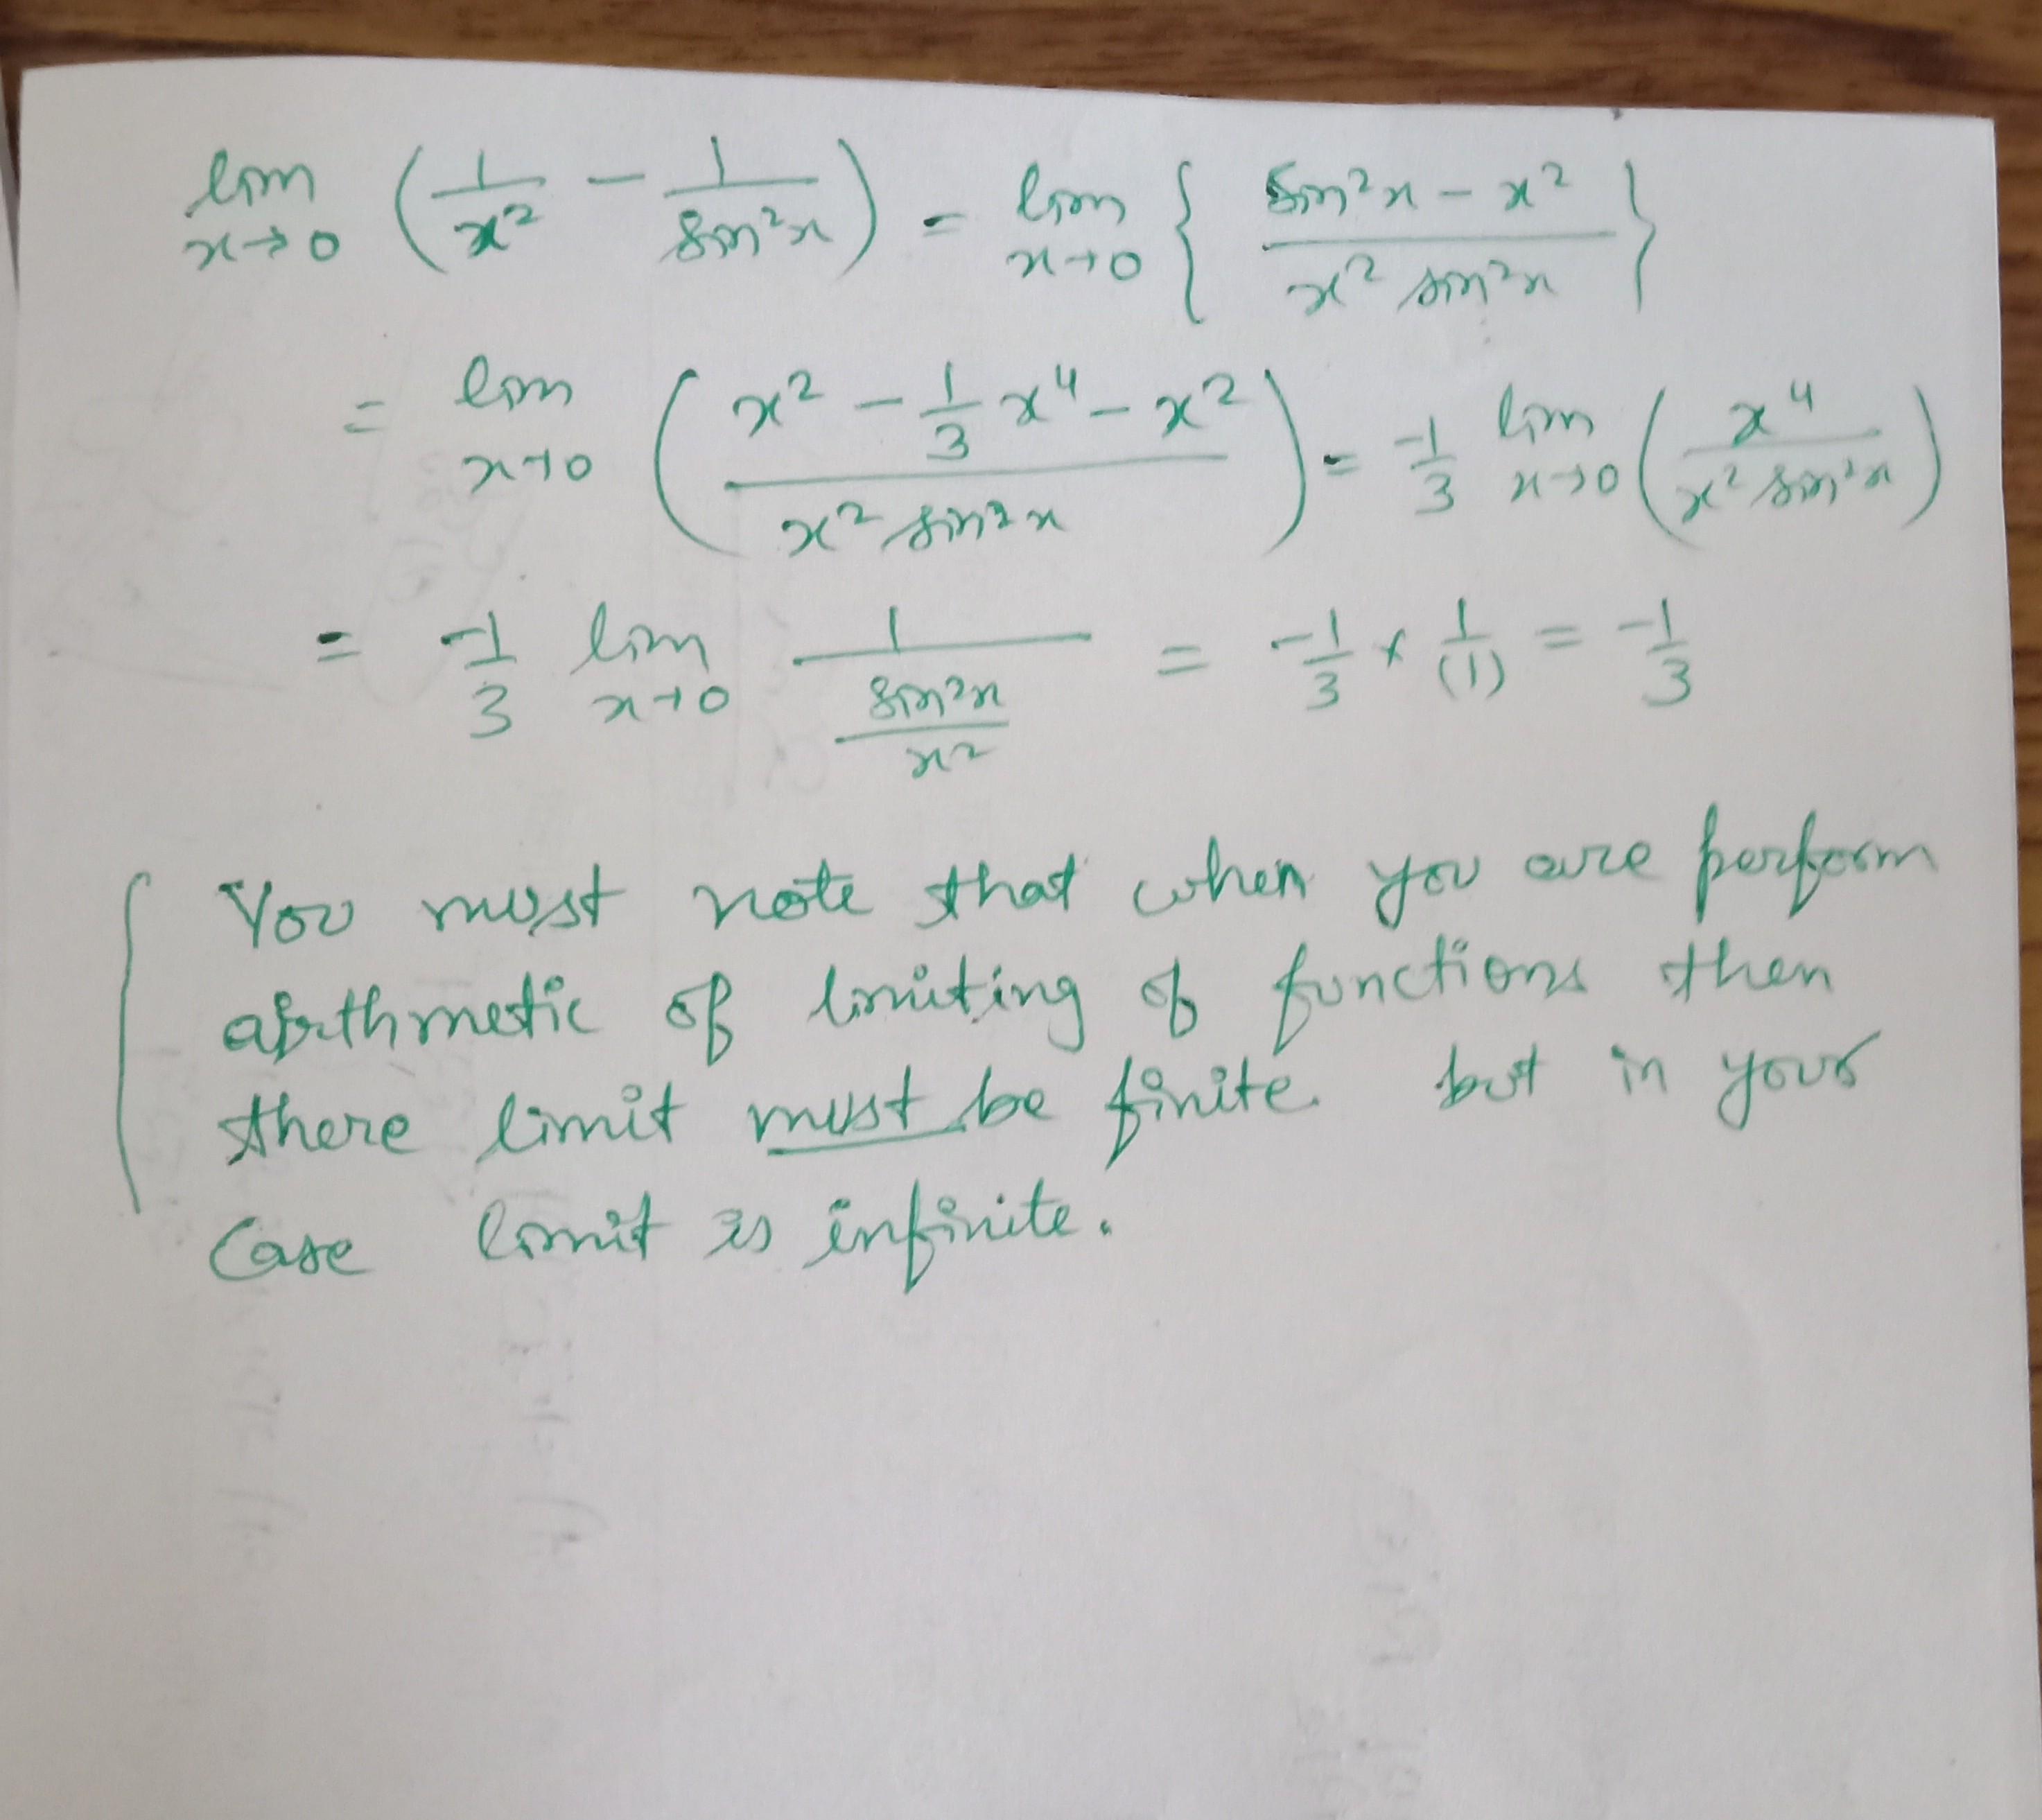 lim x→0 (1/x² − 1/sin²x) = lim x→0 { sin²x − x² / x² sin²x }
= lim x→0 ( x² − 1/3 x⁴ − x² / x² sin²x ) = −1/3 lim x→0 ( x⁴ / x² sin²x )
= −1/3 lim x→0 1 / (sin²x / x²) = −1/3 × 1/(1) = −1/3
You must note that when you are perform
arithmetic of limiting of functions then
there limit must be finite. but in your
Case limit is infinite.